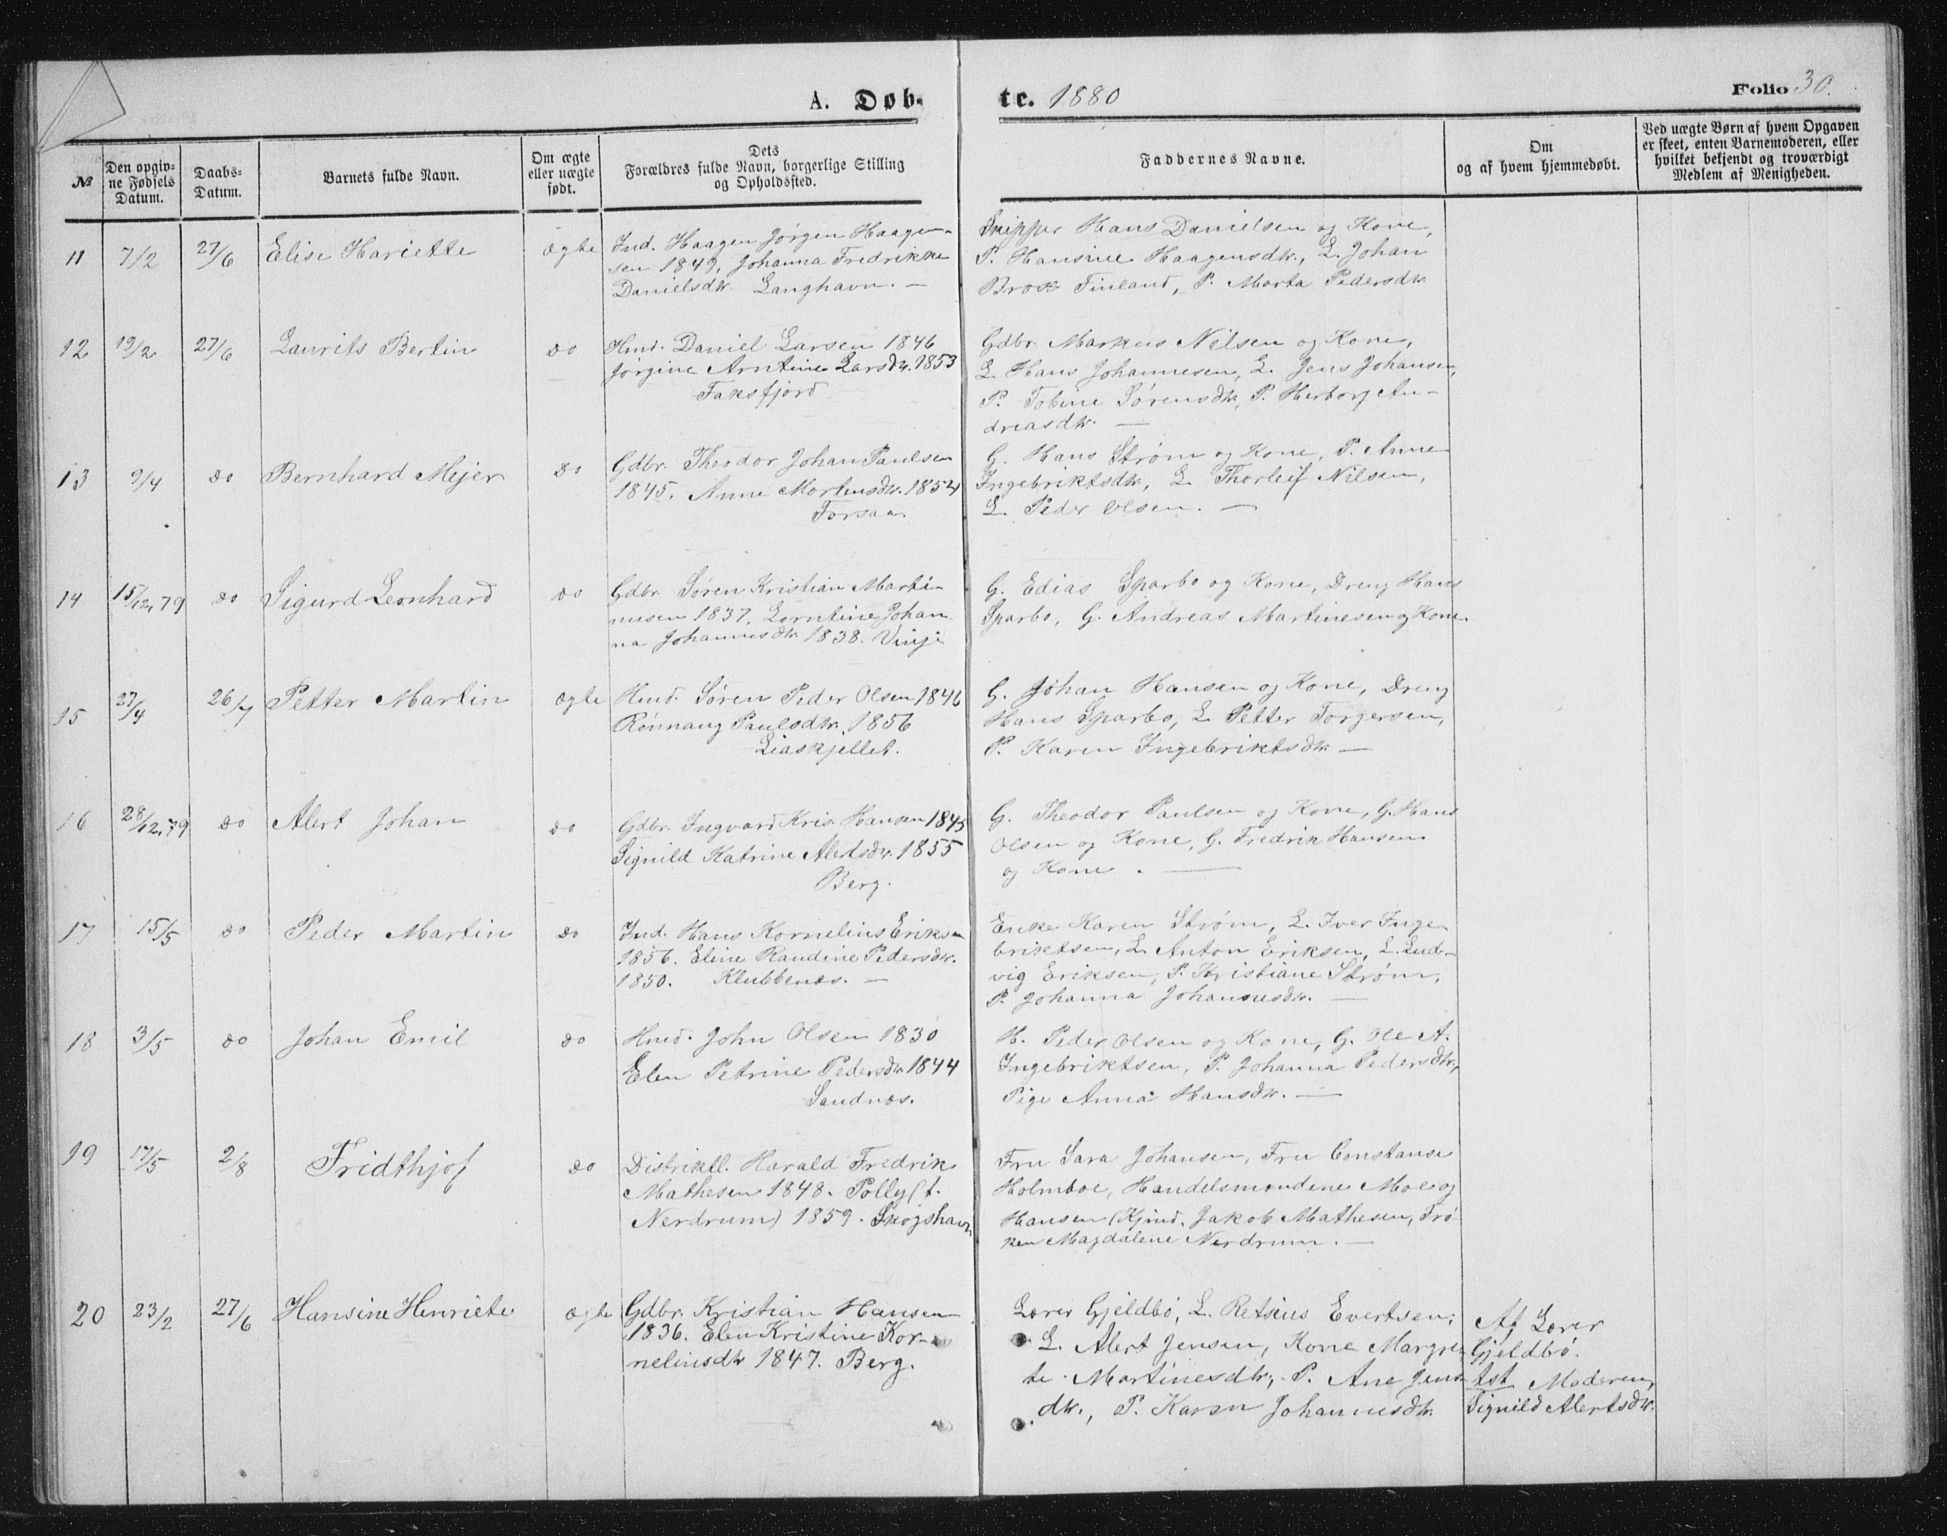 A. Døb-
te. 1880
Folio 30.
№
Den opgiv-
ne Fødsels
Datum.
Daabs-
Datum.
Barnets fulde Navn.
Om ægte
eller uægte
født.
Dets
Forældres fulde Navn, borgerlige Stilling
og Opholdssted.
Faddernes Navne.
Om
og af hvem hjemmedøbt.
Ved uægte Børn af hvem Opgaven
er skeet, enten Barnemoderen, eller
hvilket bekjendt og troværdigt
Medlem af Menigheden.
11 7/2 27/6 Elise Hariette ægte
Ind. Haagen Jørgen Haagen-
sen 1849, Johanna Fredrikke
Danielsdtr. Langhavn. —
Skipper Hans Danielsen og Kone,
P. Hansine Haagensdtr., L. Johan
Brox Finland, P. Marta Pedersdtr
12 19/2 27/6 Laurits Bertin do
Hmd. Daniel Larsen 1846
Jørgine Arntine Larsdtr. 1853
Faksfjord
Gdbr. Markus Nilsen og Kone,
L. Hans Johannesen, L. Jens Johansen,
P. Tobine Sørensdtr, P. Herborg An-
dreasdtr. —
13 9/4 do Bernhard Mejer do
Gdbr. Theodor Johan Paulsen
1845. Anne Mortensdtr. 1854
Forsaa.
G. Hans Strøm og Kone, P. Anne
Ingebriktsdtr., L. Thorleif Nilsen,
L. Peder Olsen. —
14 15/12.79 do Sigurd Leonhard do
Gdbr. Søren Kristian Marti-
nusen 1837, Lorntine Johan
na Johannesdtr. 1838. Vinje
G. Edias Sparbo og Kone, Dreng Hans
Sparbo, G. Andreas Martinesen og Kone.
15 27/4 26/7 Petter Martin ægte
Hmd. Søren Peder Olsen 1846
Rønnaug Paulsdtr. 1856
Liaskjellet.
G. Johan Hansen og Kone, Dreng
Hans Sparbo, L. Petter Torgersen,
P. Karen Ingebriktsdtr. —
16 28/12.79 do Alert Johan do
Gdbr. Ingvard Kris. Hansen 1845
Signild Katrine Alertsdtr. 1855
Berg.
G. Theodor Paulsen og Kone, G. Hans
Olsen og Kone, G. Fredrik Hansen
og Kone. —
17 15/5 do Peder Martin do
Ind. Hans Kornelius Eriksen
1856. Eline Randine Pedersdtr.
1850. Klubbenæs. —
Enke Karen Strøm, L. Iver Inge-
briktsen, L. Anton Eriksen, L. Lud-
vig Eriksen, P. Kristiane Strøm,
P. Johanna Johannesdtr. —
18 3/5 do Johan Emil do
Hmd. John Olsen 1830
Elen Petrine Pedersdtr 1844
Sandnæs.
H. Peder Olsen og Kone, G. Ole A.
Ingebriktsen, P. Johanna Pedersdtr,
Pige Anna Hansdtr. —
19 17/5 2/8 Fridthjof do
Distriktl. Harald Fredrik
Mathesen 1848. Polly (f.
Nerdrum) 1859. Skogshavn
Fru Sara Johansen, Fru Constanse
Holmboe, Handelsmændene Moe og
Hansen (Kjind. Jakob Mathesen, Frø-
ken Magdalene Nerdrum. —
20 23/2 27/6 Hansine Henriete ægte
Gdbr. Kristian Hansen
1836. Elen Kristine Kor-
neliusdtr 1847. Berg.
Lærer Gjeldbø, L. Retsius Evertsen,
L. Alert Jensen, Kone Margre-
te Martinesdtr, P. Ane Jens
dtr., P. Karen Johannesdtr.
Af Lærer
Gjeldbø.
Tst Moderen,
Signild Alertsdtr.